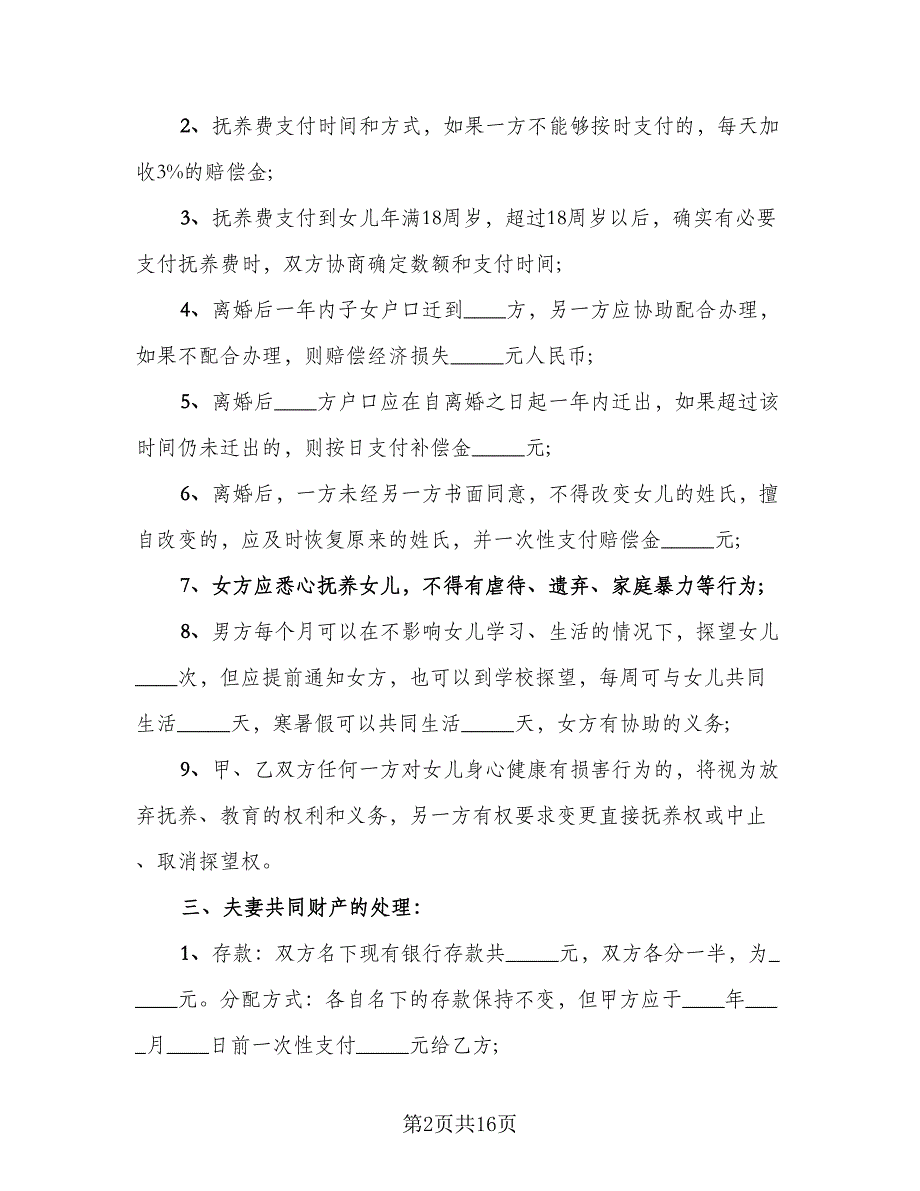 2、抚养费支付时间和方式，如果一方不能够按时支付的，每天加
收3%的赔偿金;
3、抚养费支付到女儿年满18周岁，超过18周岁以后，确实有必要
支付抚养费时，双方协商确定数额和支付时间;
4、离婚后一年内子女户口迁到____方，另一方应协助配合办理，
如果不配合办理，则赔偿经济损失_____元人民币;
5、离婚后____方户口应在自离婚之日起一年内迁出，如果超过该
时间仍未迁出的，则按日支付补偿金_____元;
6、离婚后，一方未经另一方书面同意，不得改变女儿的姓氏，擅
自改变的，应及时恢复原来的姓氏，并一次性支付赔偿金_____元;
7、女方应悉心抚养女儿，不得有虐待、遗弃、家庭暴力等行为;
8、男方每个月可以在不影响女儿学习、生活的情况下，探望女儿
____次，但应提前通知女方，也可以到学校探望，每周可与女儿共同
生活_____天，寒暑假可以共同生活_____天，女方有协助的义务;
9、甲、乙双方任何一方对女儿身心健康有损害行为的，将视为放
弃抚养、教育的权利和义务，另一方有权要求变更直接抚养权或中止
、取消探望权。
三、夫妻共同财产的处理：
1、存款：双方名下现有银行存款共_____元，双方各分一半，为_
____元。分配方式：各自名下的存款保持不变，但甲方应于____年___
_月____日前一次性支付_____元给乙方;
第2页共16页